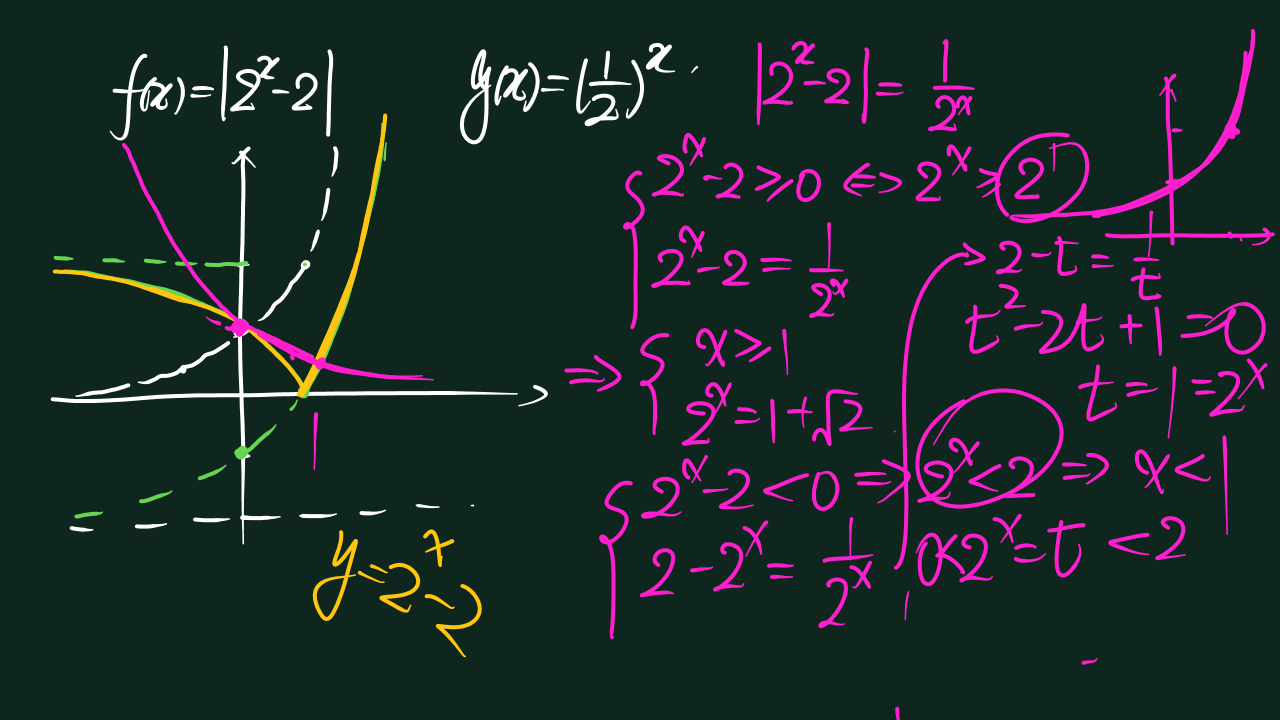 f(x)=|2^x-2|
y(x)=(1/2)^x
|2^x-2|=1/2^x
2^x-2⩾0 ⇔ 2^x⩾2^1
2^x-2=1/2^x
⇒ x⩾1
2^x=1+√2
2^x-2<0 ⇒ 2^x<2 ⇒ x<1
2-2^x=1/2^x
0<2^x=t<2
→ 2-t=1/t
t^2-2t+1=0
t=1=2^x
1
y=2^x-2